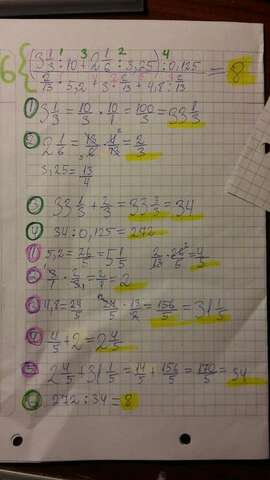 1 3 2 4
6 { (3 1/3 : 10 + 2 1/6 : 3,25) : 0,125 = 8
2/13 : 5,2 + 3 : 4,8 : 13
① 3 1/3 = 10/3 · 10/1 = 100/3 = 33 1/3
② 2 1/6 = 13/6 · 4/13 = 2/3
3,25 = 13/4
③ 33 1/3 + 2/3 = 33 3/3 = 34
④ 34 : 0,125 = 272
① 5,2 = 26/5 = 5 1/5 2/13 · 26/5 = 4/5
② 3/1 · 2/3 = 2/1 = 2
③ 4,8 = 24/5 24/5 · 13/2 = 156/5 = 31 1/5
④ 4/5 + 2 = 2 4/5
⑤ 2 4/5 + 31 1/5 = 14/5 + 156/5 = 170/5 = 34
⑥ 272 : 34 = 8